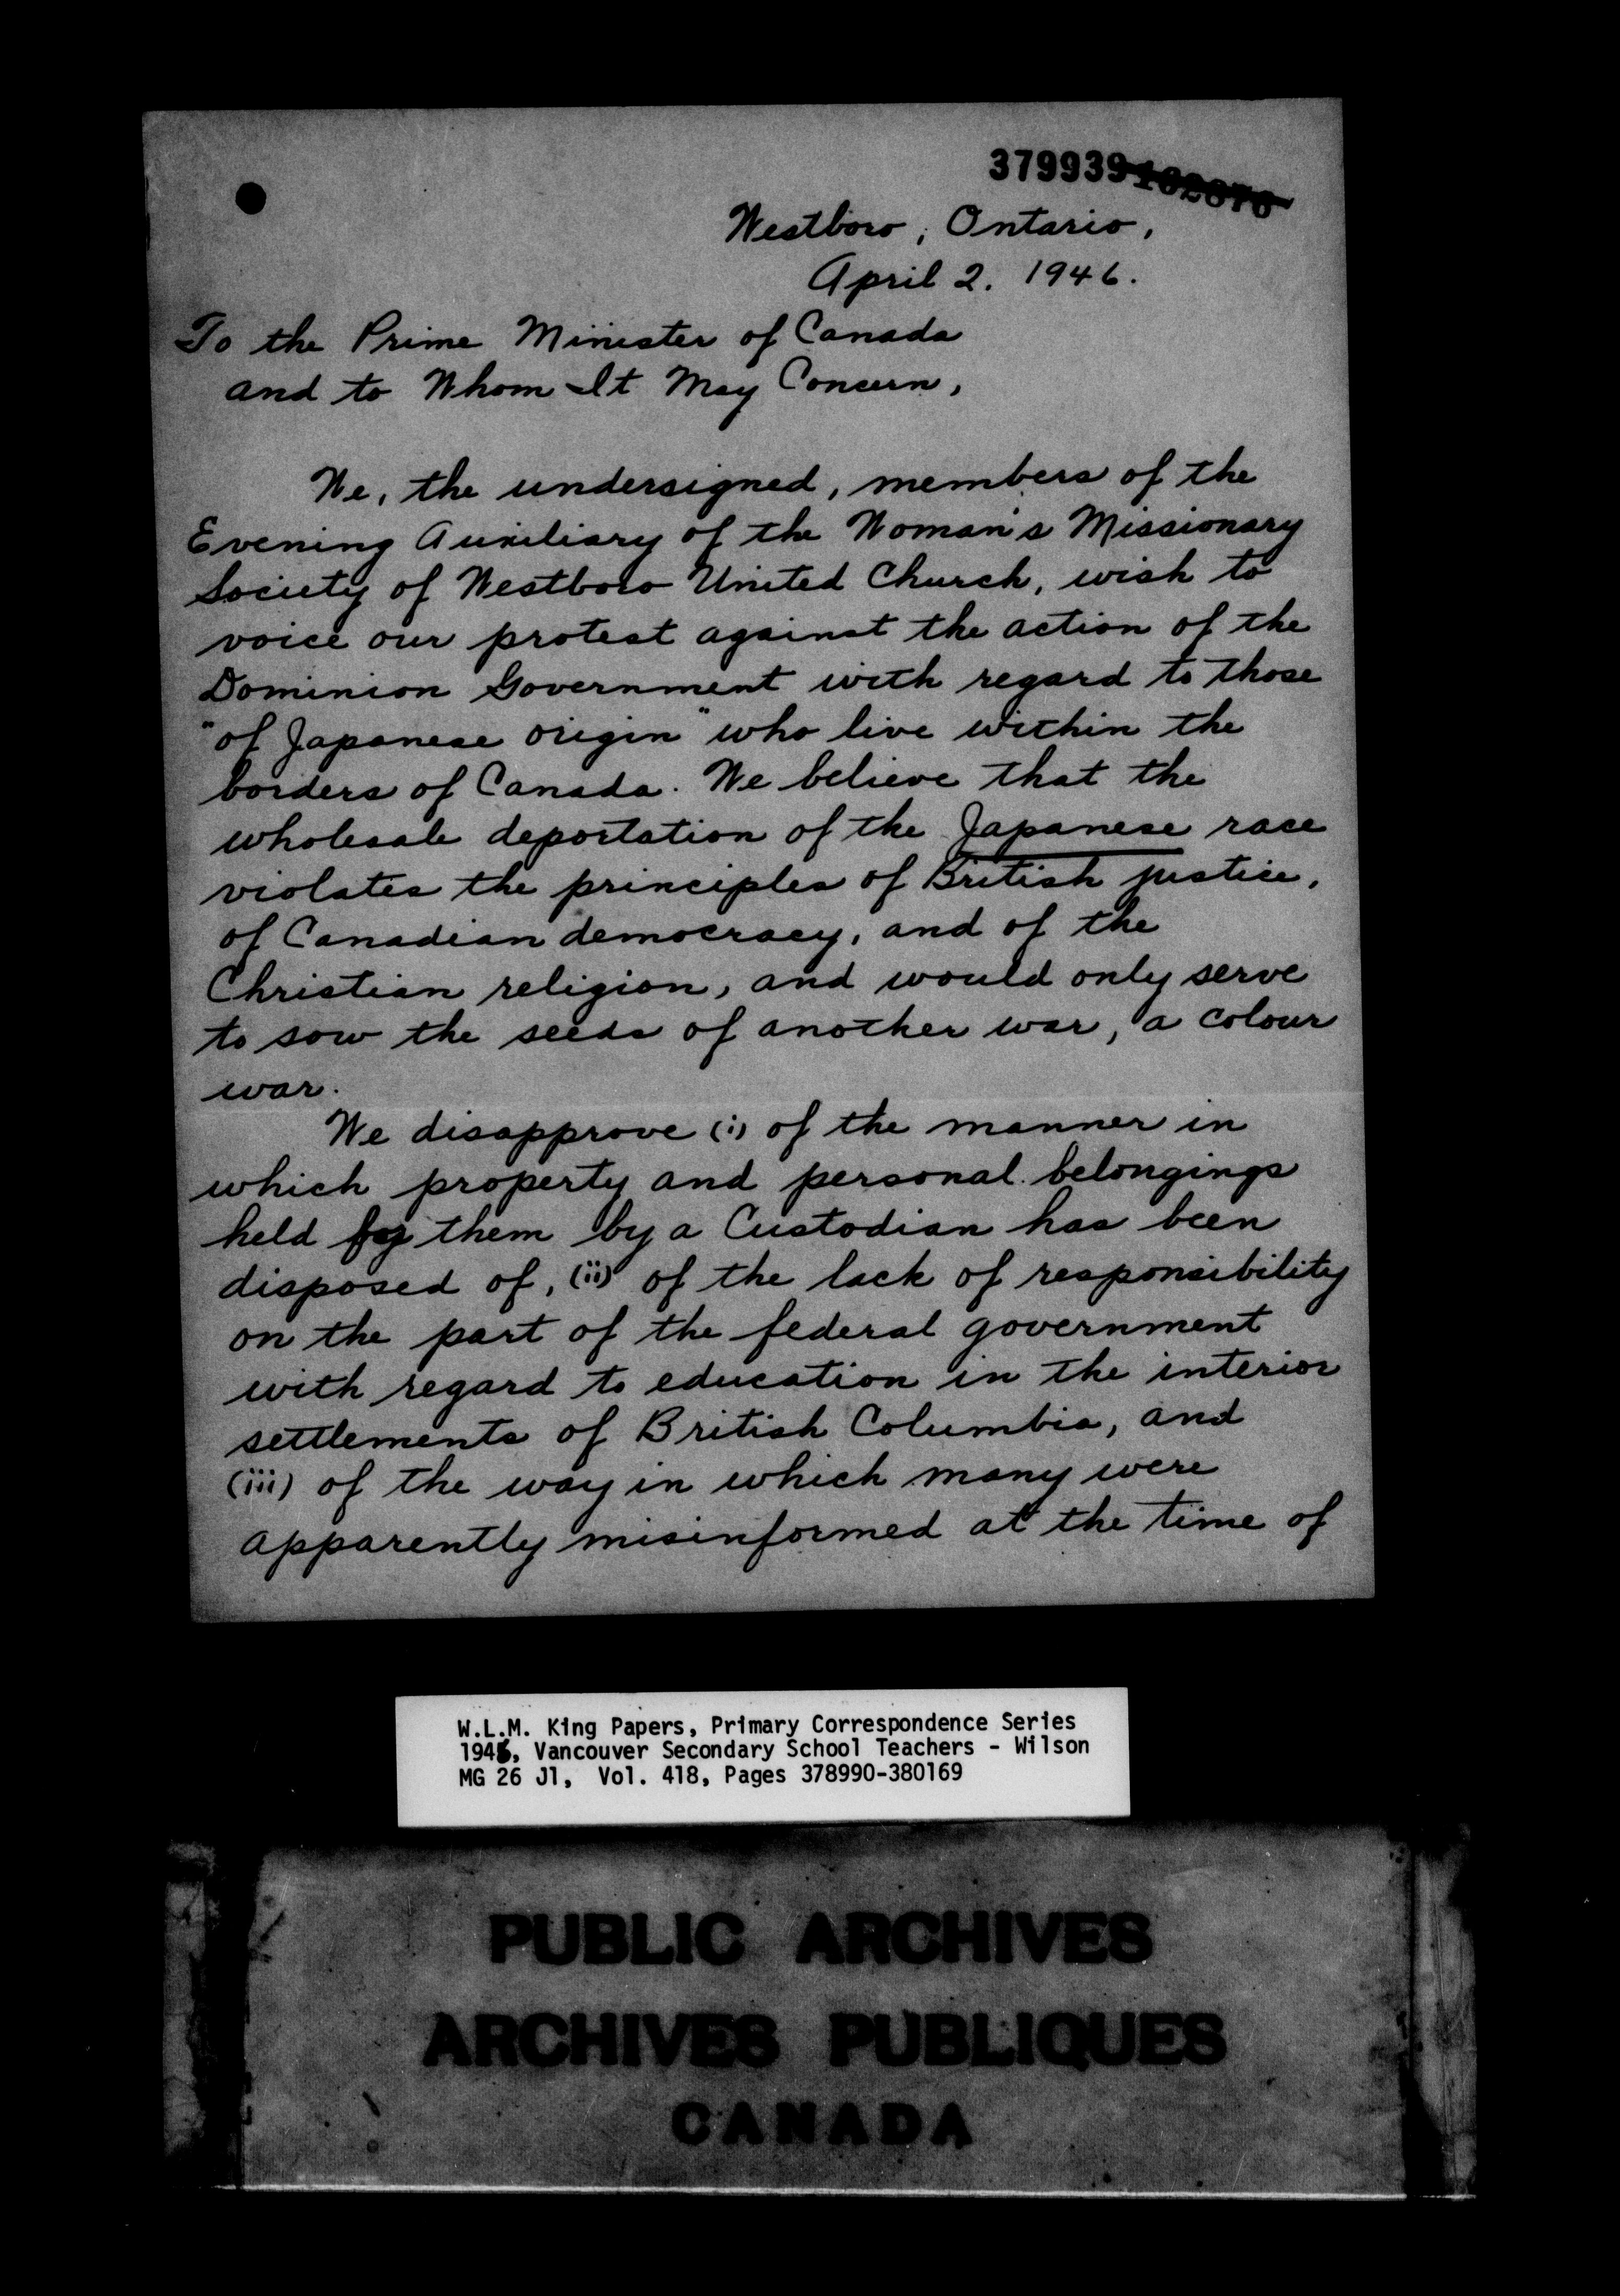 379939 102876
Westboro, Ontario,
April 2. 1946.
To the Prime Minister of Canada
and to Whom It May Concern,
We, the undersigned, members of the
Evening Auxiliary of the Woman's Missionary
Society of Westboro United Church, wish to
voice our protest against the action of the
Dominion Government with regard to those
"of Japanese origin" who live within the
borders of Canada. We believe that the
wholesale deportation of the Japanese race
violates the principles of British justice,
of Canadian democracy, and of the
Christian religion, and would only serve
to sow the seeds of another war, a colour
war.
We disapprove (i) of the manner in
which property and personal belongings
held for them by a Custodian has been
disposed of, (ii) of the lack of responsibility
on the part of the federal government
with regard to education in the interior
settlements of British Columbia, and
(iii) of the way in which many were
apparently misinformed at the time of
W.L.M. King Papers, Primary Correspondence Series
1946, Vancouver Secondary School Teachers - Wilson
MG 26 J1, Vol. 418, Pages 378990-380169
PUBLIC ARCHIVES
ARCHIVES PUBLIQUES
CANADA